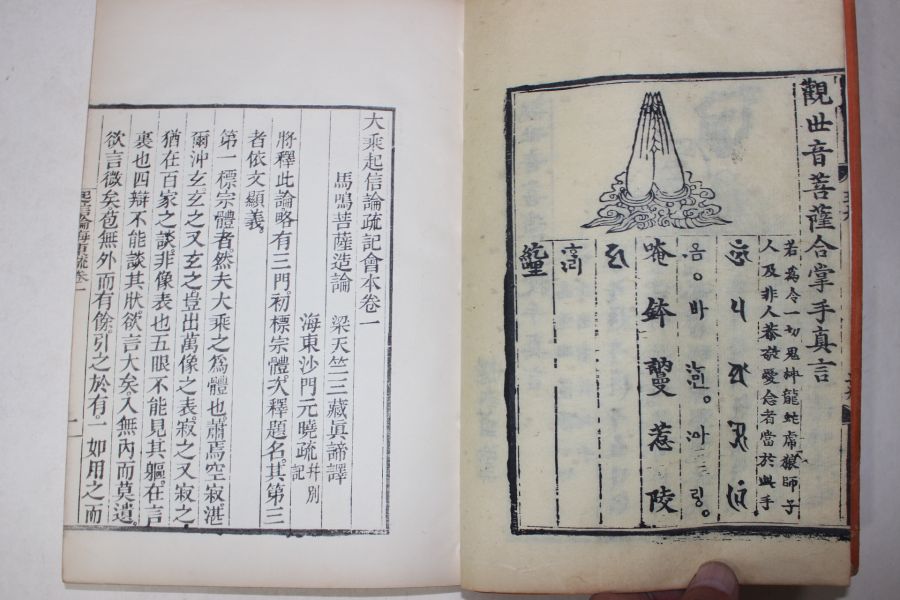 觀世音菩薩合掌手真言
若為令一切鬼神龍蛇虎狼師子
人及非人恭敬愛念者當於此手
唵鉢𤚥惹陵
大乘起信論疏記會本卷一
馬鳴菩薩造論 梁天竺三藏眞諦譯
海東沙門元曉疏 幷別記
將釋此論。略有三門。初標宗體。次釋題名。其第三
者依文顯義。
第一標宗體者。然夫大乘之爲體也。蕭焉空寂。湛
爾沖玄。玄之又玄之。豈出萬像之表。寂之又寂之。
猶在百家之談。非像表也。五眼不能見其軀。在言
裏也。四辯不能談其狀。欲言大矣。入無內而莫遺。
欲言微矣。苞無外而有餘。引之於有。一如用之而
起信論海東疏卷一
一